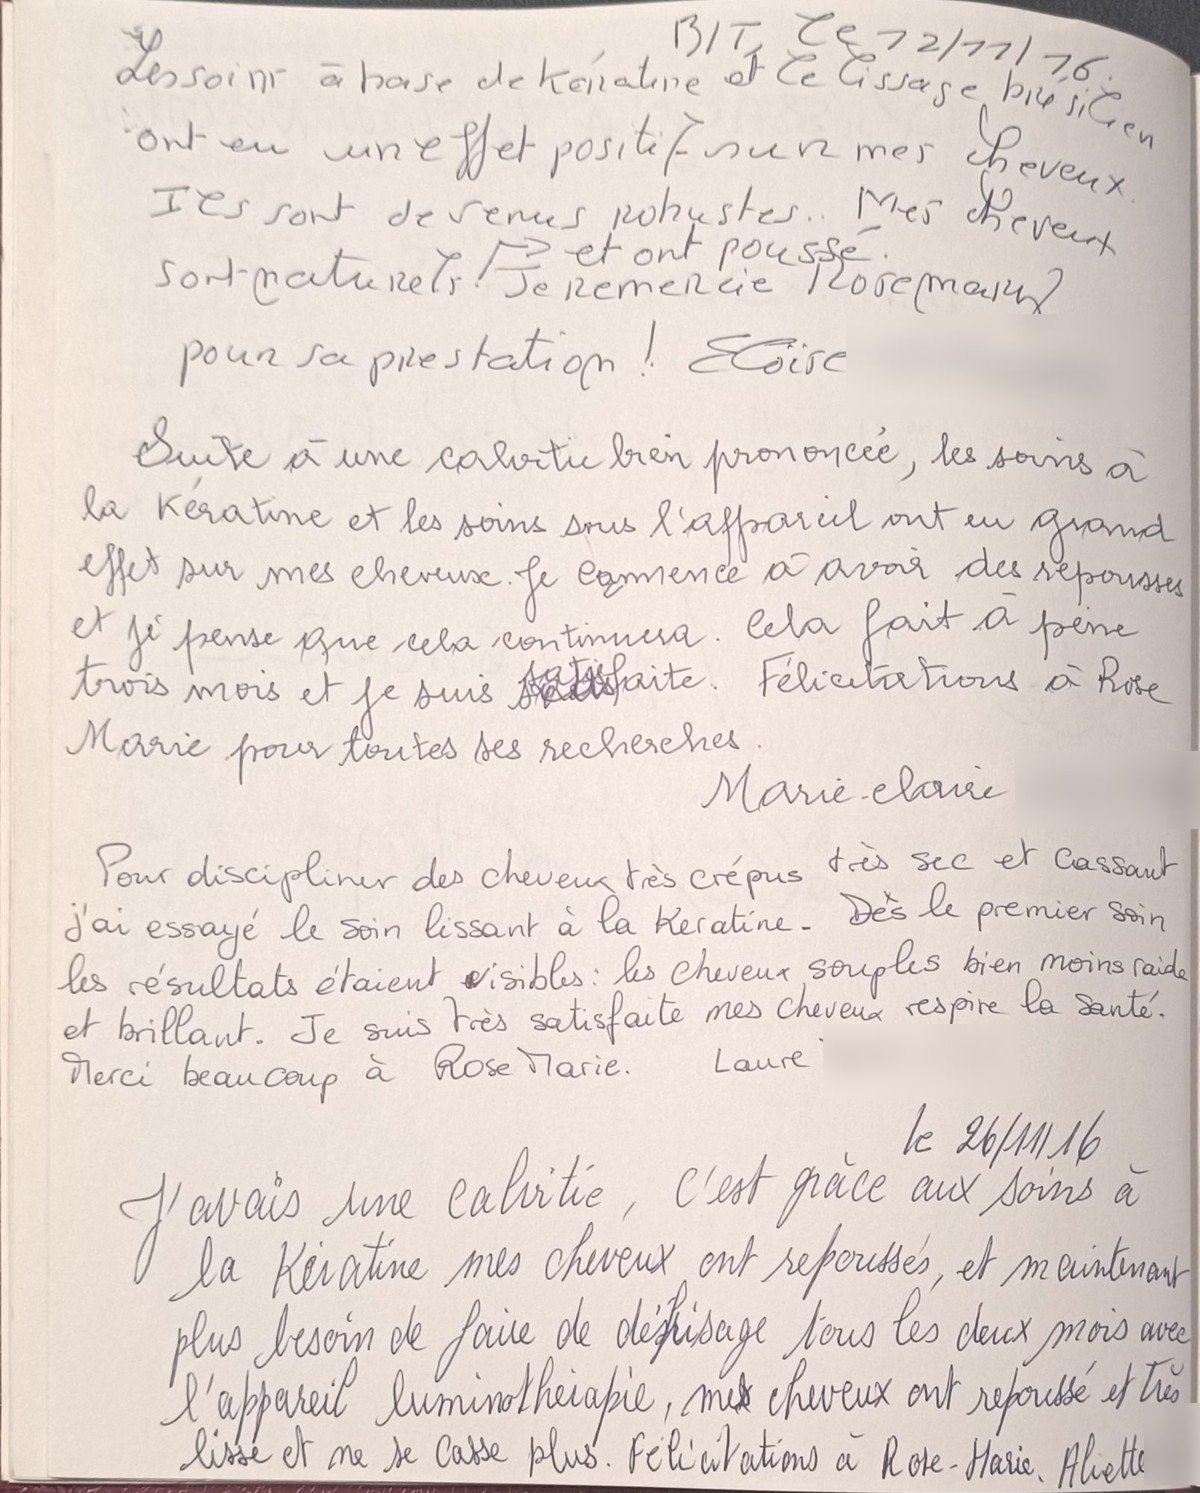 B/T, le 12/11/16.
Les soins à base de Kératine et le lissage brésilien
ont eu un effet positif sur mes cheveux.
Ils sont devenus robustes.. Mes cheveux
et ont poussé.
sont naturels ! Je remercie Rosemary
pour sa prestation ! Eloïse
Suite à une calvitie bien prononcée, les soins à
la Kératine et les soins sous l'appareil ont eu grand
effet sur mes cheveux. Je commence à avoir des repousses
et je pense que cela continuera. Cela fait à peine
trois mois et je suis satisfaite. Félicitations à Rose
Marie pour toutes ses recherches.
Marie-claire
Pour discipliner des cheveux très crépus très sec et cassant
j'ai essayé le soin lissant à la Keratine. Dès le premier soin
les résultats étaient visibles : les cheveux souples bien moins raide
et brillant. Je suis très satisfaite mes cheveux respire la santé.
Merci beaucoup à Rose Marie. Laure
le 26/11/16
J'avais une calvitie, c'est grâce aux soins à
la Kératine mes cheveux ont repoussés, et maintenant
plus besoin de faire de défrisage tous les deux mois avec
l'appareil luminothérapie, mes cheveux ont repoussé et très
lisse et ne se casse plus. Félicitations à Rose-Marie. Aliette